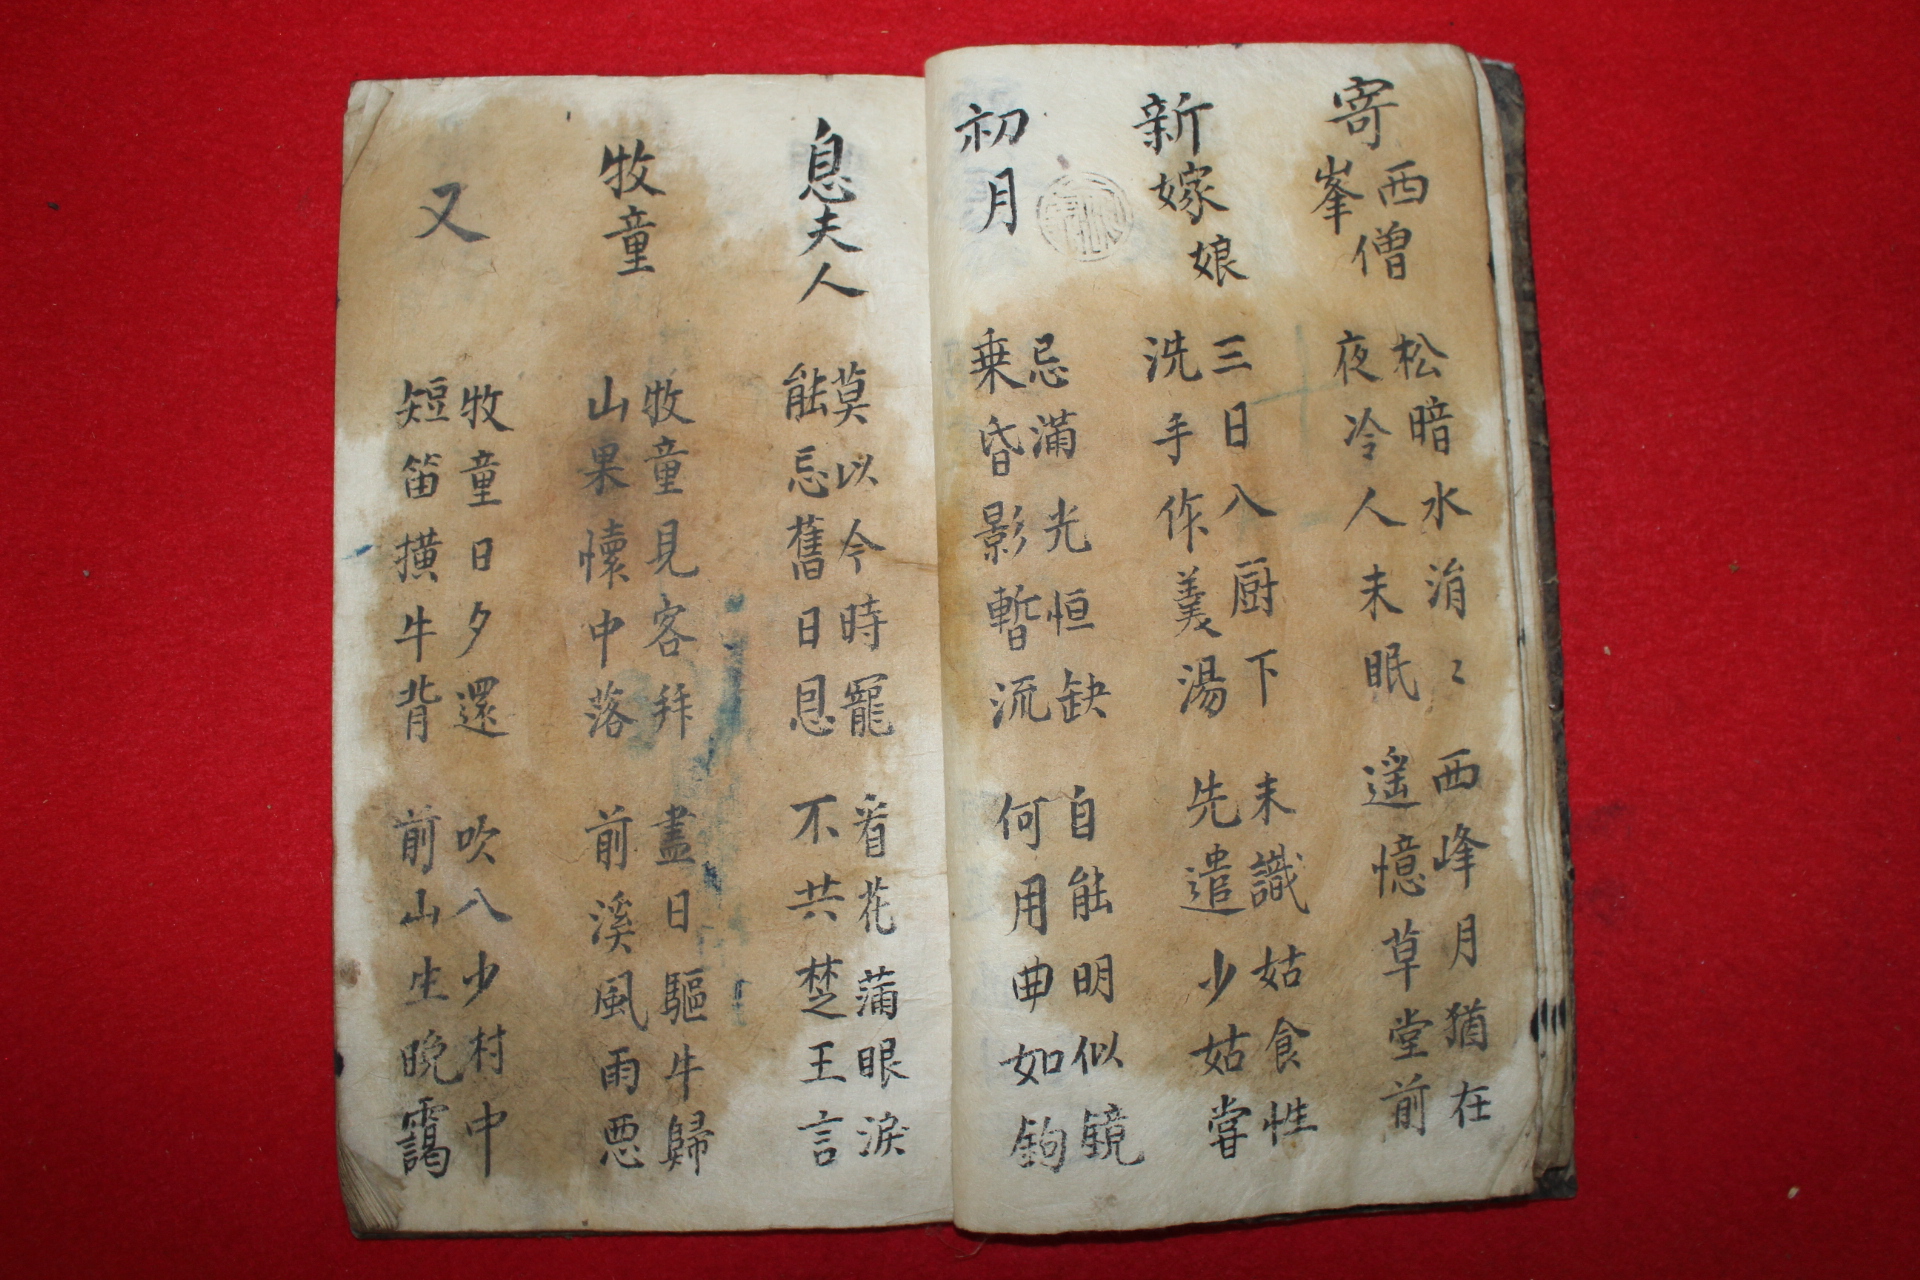 寄西峯僧
松暗水涓〻
夜冷人未眠
西峰月猶在
遥憶草堂前
新嫁娘
三日八厨下
洗手作羹湯
未識姑食性
先遣少姑嘗
初月
忌滿光恒缺
乗昏影暫流
自能明似鏡
何用曲如鉤
息夫人
莫以今時寵
能忌舊日恩
看花蒲眼淚
不共楚王言
牧童
牧童見客拜
山果懷中落
盡日驅牛歸
前溪風雨悪
又
牧童日夕還
短笛撗牛背
吹八少村中
前山生晚靄